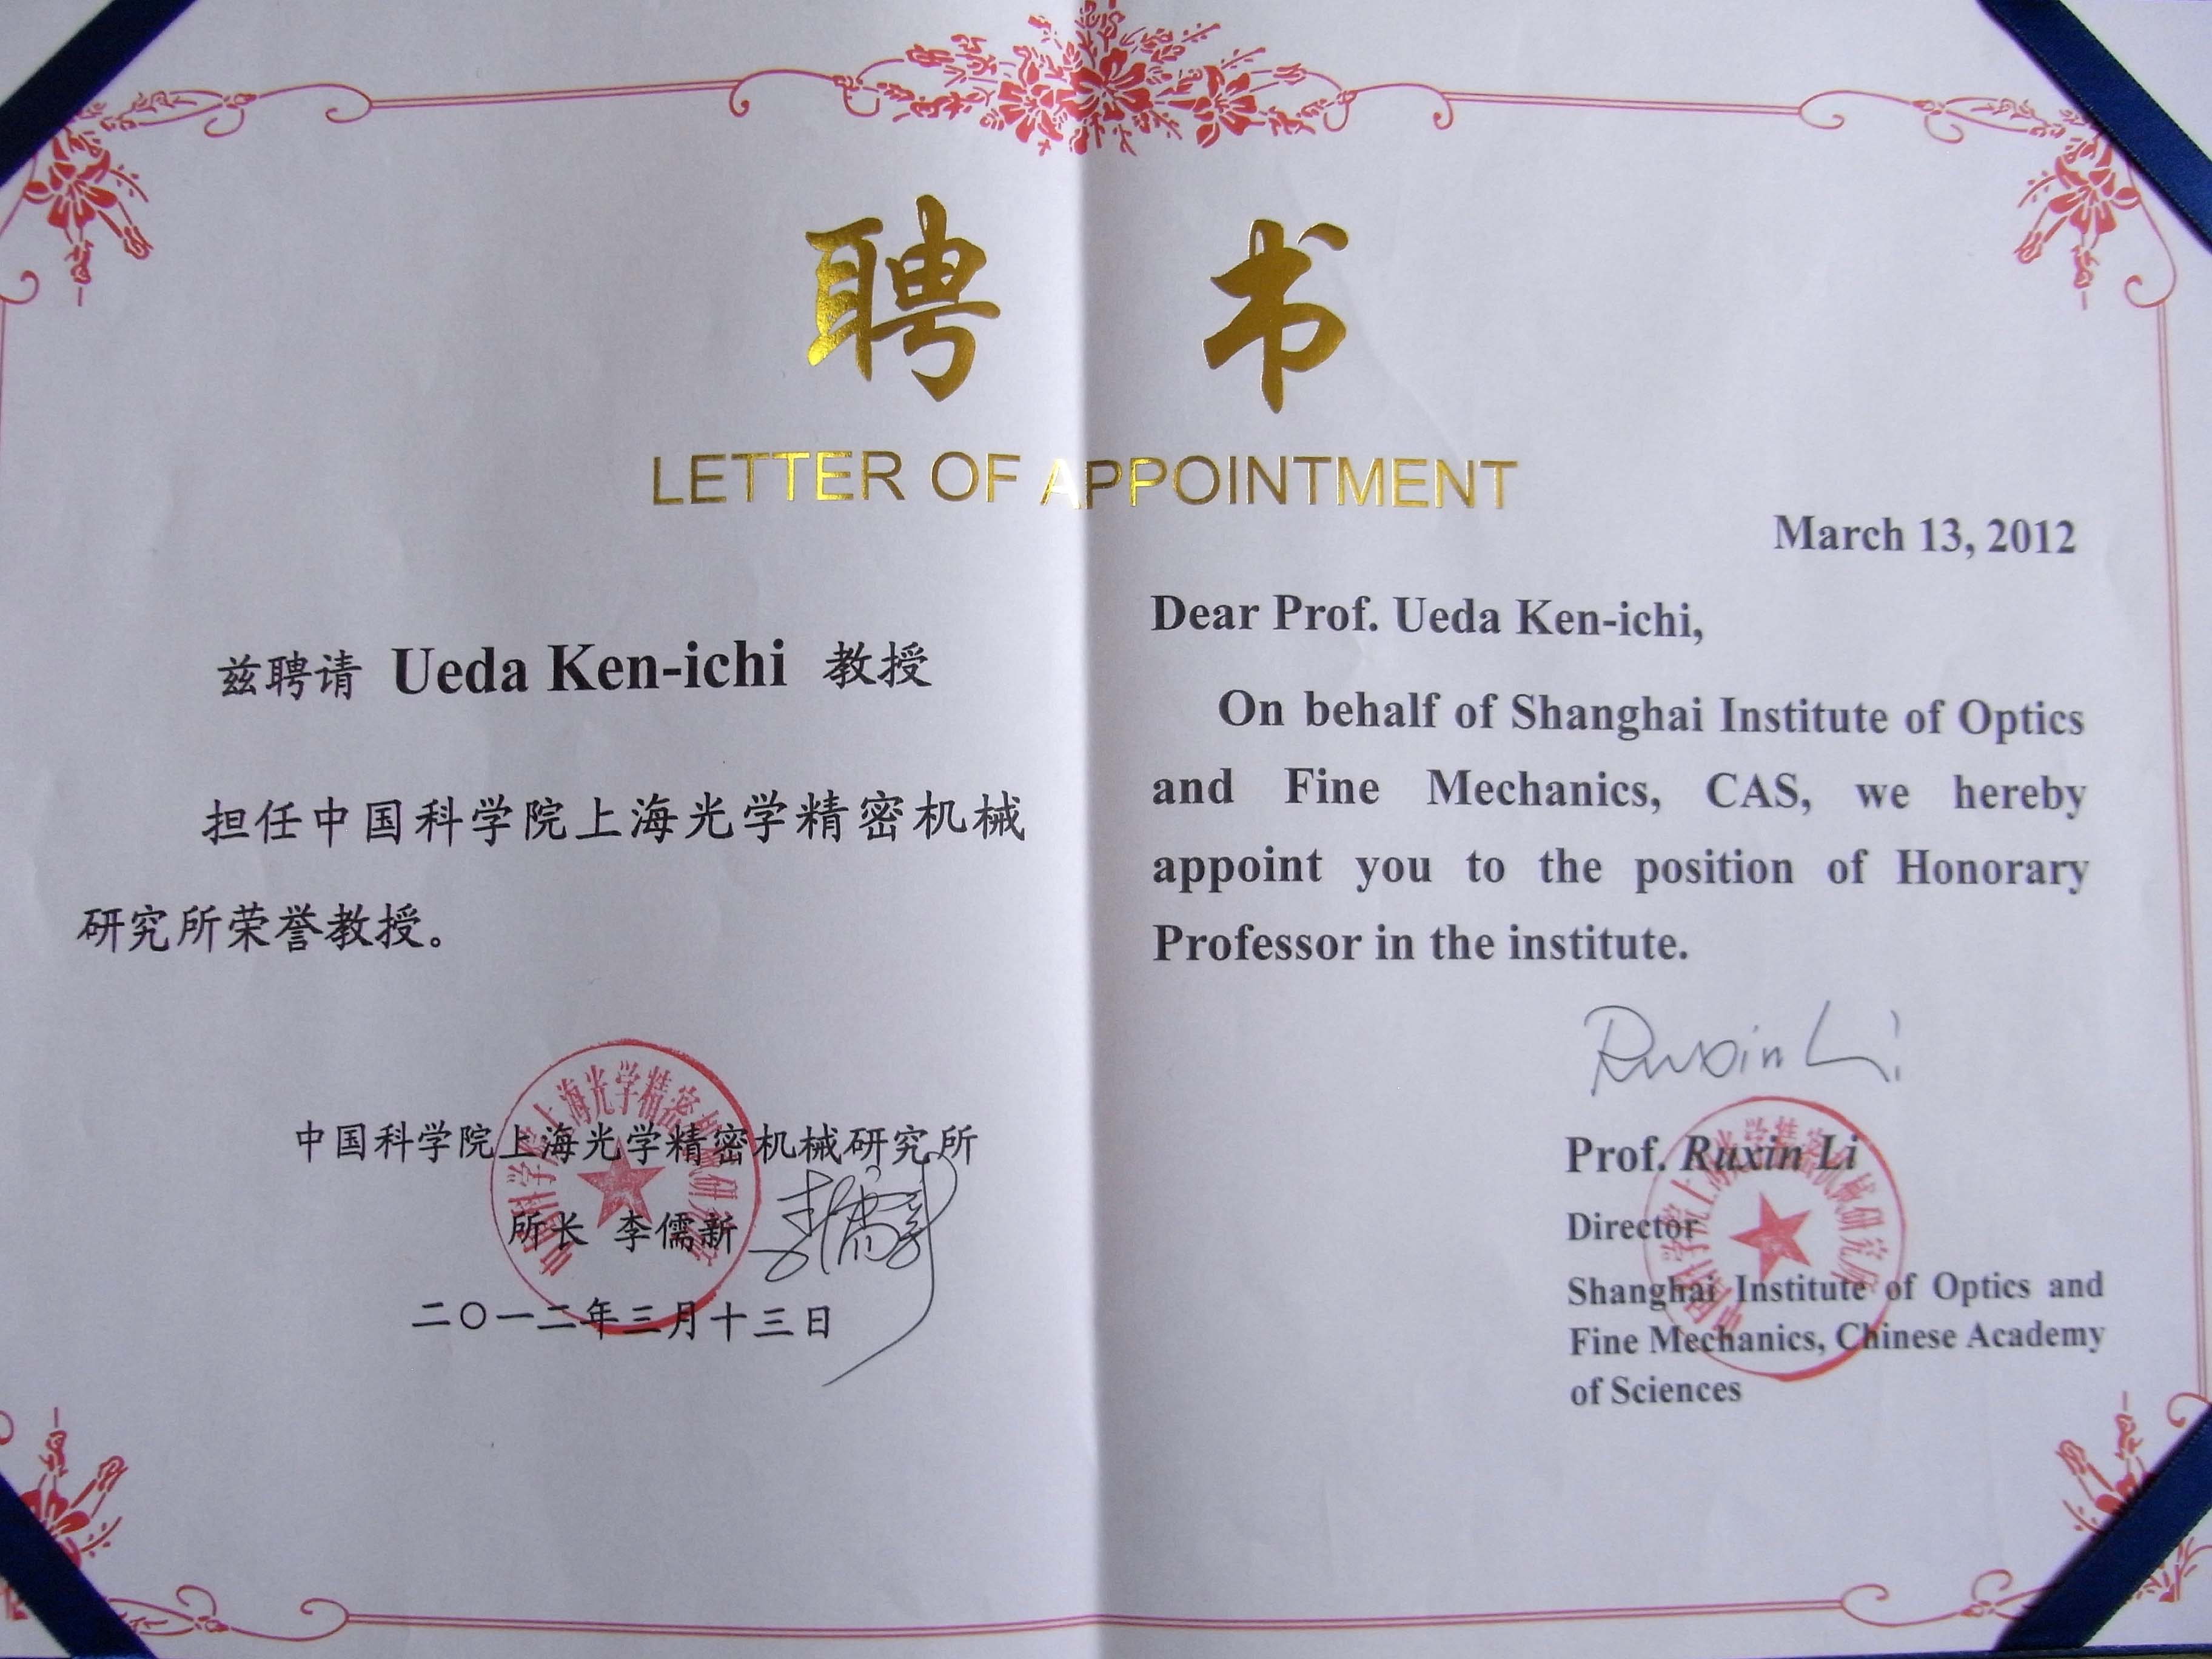 聘 书
LETTER OF APPOINTMENT
兹聘请 Ueda Ken-ichi 教授
担任中国科学院上海光学精密机械
研究所荣誉教授。
中国科学院上海光学精密机械研究所
所长 李儒新 李儒新
二〇一二年三月十三日
中国科学院上海光学精密机械研究所
March 13, 2012
Dear Prof. Ueda Ken-ichi,
On behalf of Shanghai Institute of Optics
and Fine Mechanics, CAS, we hereby
appoint you to the position of Honorary
Professor in the institute.
Ruxin Li
Prof. Ruxin Li
Director
Shanghai Institute of Optics and
Fine Mechanics, Chinese Academy
of Sciences
中国科学院上海光学精密机械研究所